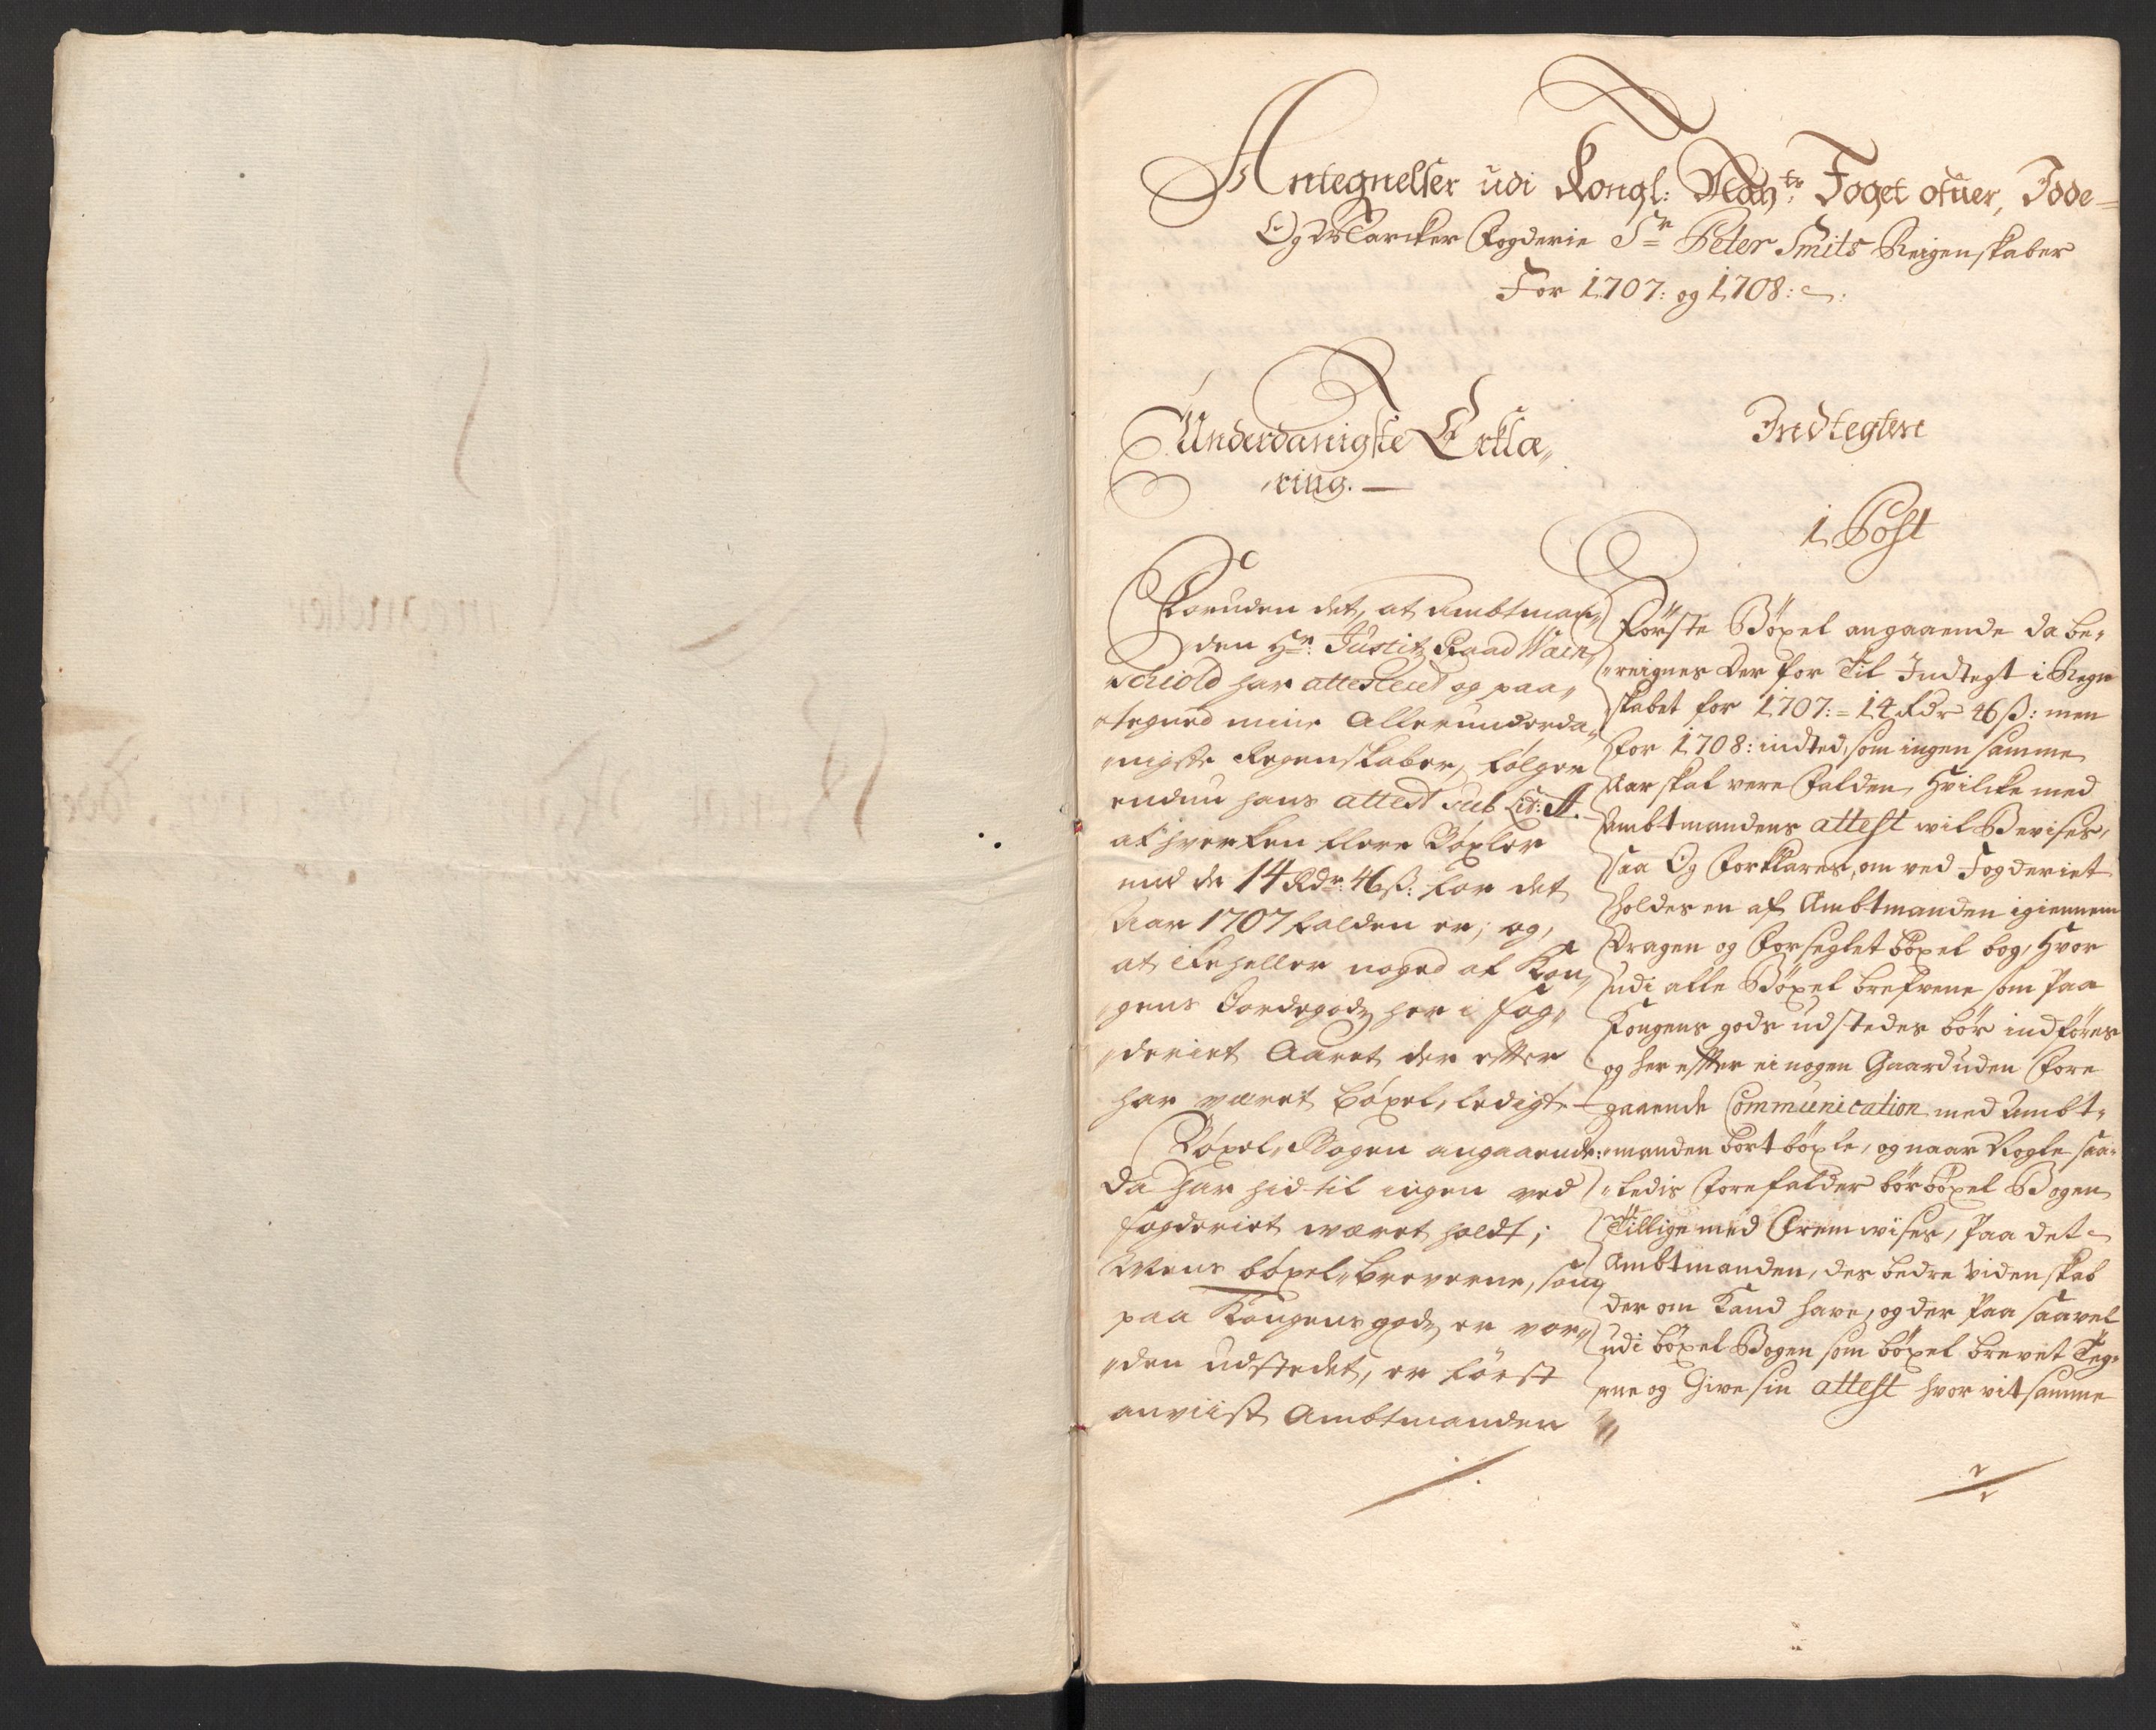 Antegnelser udi Kongl: May:ts Foget ofuer, Idde=
Og Marcker Fogderie Sr Peter Smits Reigenskaber
For 1707: og 1708:
Underdanigste Erklæ„
„ring.
Foruden det, at Ambtman„
den Hr: Justitz Raad Wærn„
schiold har attesteret og paa„
„tegned mine Allerunderda„
„nigste Regenskaber, følger
endnu hans attest sub Lit: A.
at hverken flere Böxler
end de 14 Rdr: 46 ß: for det
Aar 1707 falden er; og,
at ikke heller noged af Kon„
„gens Jordegodz her i fog„
„deriet Aaret der effter
har været böxel, ledigt.
Böxel, Bogen angaaende:
da har hid til ingen ved
fogderiet været holdt;
Mens böxel„brevene, som
paa Kongens godz er vor„
„den udstedet, er först
anviist Ambtmanden
Indtegten
1. Post
Förste Böxel angaaende da be„
„reignes der for Til Indtegt i Regn
skabet for 1707: = 14 Rdr 46 ß: men
for 1708: indted, som ingen samme
Aar skal vere falden, Hvilcke med
Ambtmandens attest wil Bevises,
saa Og forklares, om ved Fogderiet
holdes en af Ambtmanden igiennem
Dragen og forseglet böxel bog, Hvor
udi alle Böxel brefvene som Paa
Kongens gods udstedes bör indföres
og her effter ei nogen Gaard uden fore
gaaende Communication med Ambt„
„manden bort böxle, og naar Nogle saa„
„ledis forefalder bör böxel Bogen
Tillige med Fremvises, Paa det
Ambtmanden, des bedre Videnskab
der om kand have, og der Paa saavel
udi böxel Bogen som böxel brevet Teg„
„ne og Give sin attest hvor vit samme